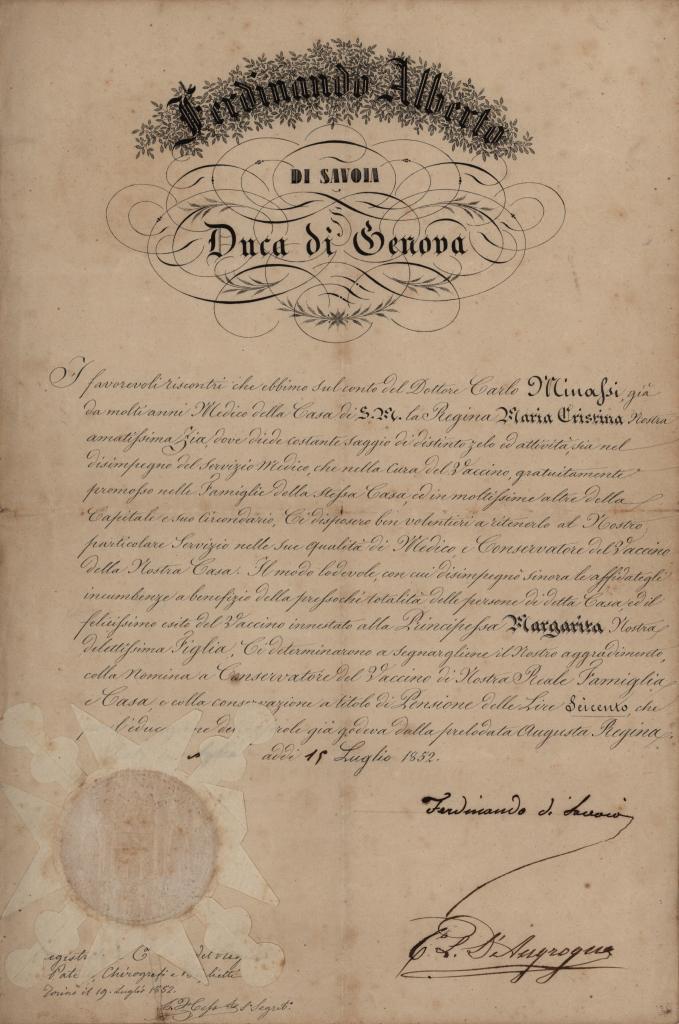 Ferdinando Alberto
DI SAVOIA
Duca di Genova
I favorevoli riscontri che ebbimo sul conto del Dottore Carlo Minassi, già
da molti anni Medico della Casa di S.M. la Regina Maria Cristina Nostra
amatissima Zia, dove diede costante saggio di distinto zelo ed attività, sia nel
disimpegno del servizio Medico, che nella cura del Vaccino, gratuitamente
promosso nelle Famiglie della stessa Casa, ed in moltissime altre della
Capitale e suo Circondario, Ci disposero ben volentieri a ritenerlo al Nostro
particolare Servizio nelle sue qualità di Medico, e Conservatore del Vaccino
della Nostra Casa. Il modo lodevole, con cui disimpegnò sinora le affidategli
incumbenze a benefizio della pressochè totalità delle persone di detta Casa, ed il
felicissimo esito del Vaccino innestato alla Principessa Margarita Nostra
dilettissima Figlia, Ci determinarono a segnargliene il Nostro aggradimento,
colla Nomina a Conservatore del Vaccino di Nostra Reale Famiglia
e Casa, e colla conservazione a titolo di Pensione delle Lire Seicento, che
già godeva dalla prelodata Augusta Regina.
addì 15 Luglio 1852.
Ferdinando di Savoia
D'Angrogna
Chirografi e
Torino il 19 Luglio 1852.